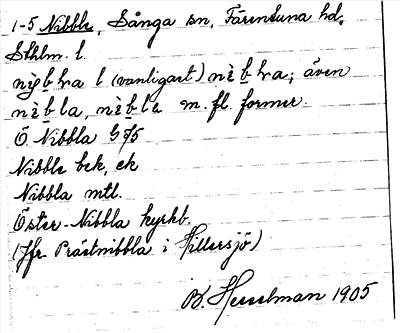 1-5 Nibble, Sånga sn, Färentuna hd,
Sthlm. l.
nìbbla l (vanligast) nèbbla; även
nèbla, nèble m.fl. former.
Ö Nibbla G75
Nibble bek, ek
Nibbla mtl.
Öster-Nibbla kyrkb.
(Jfr Prästnibbla i Hillersjö)
B. Hesselman 1905